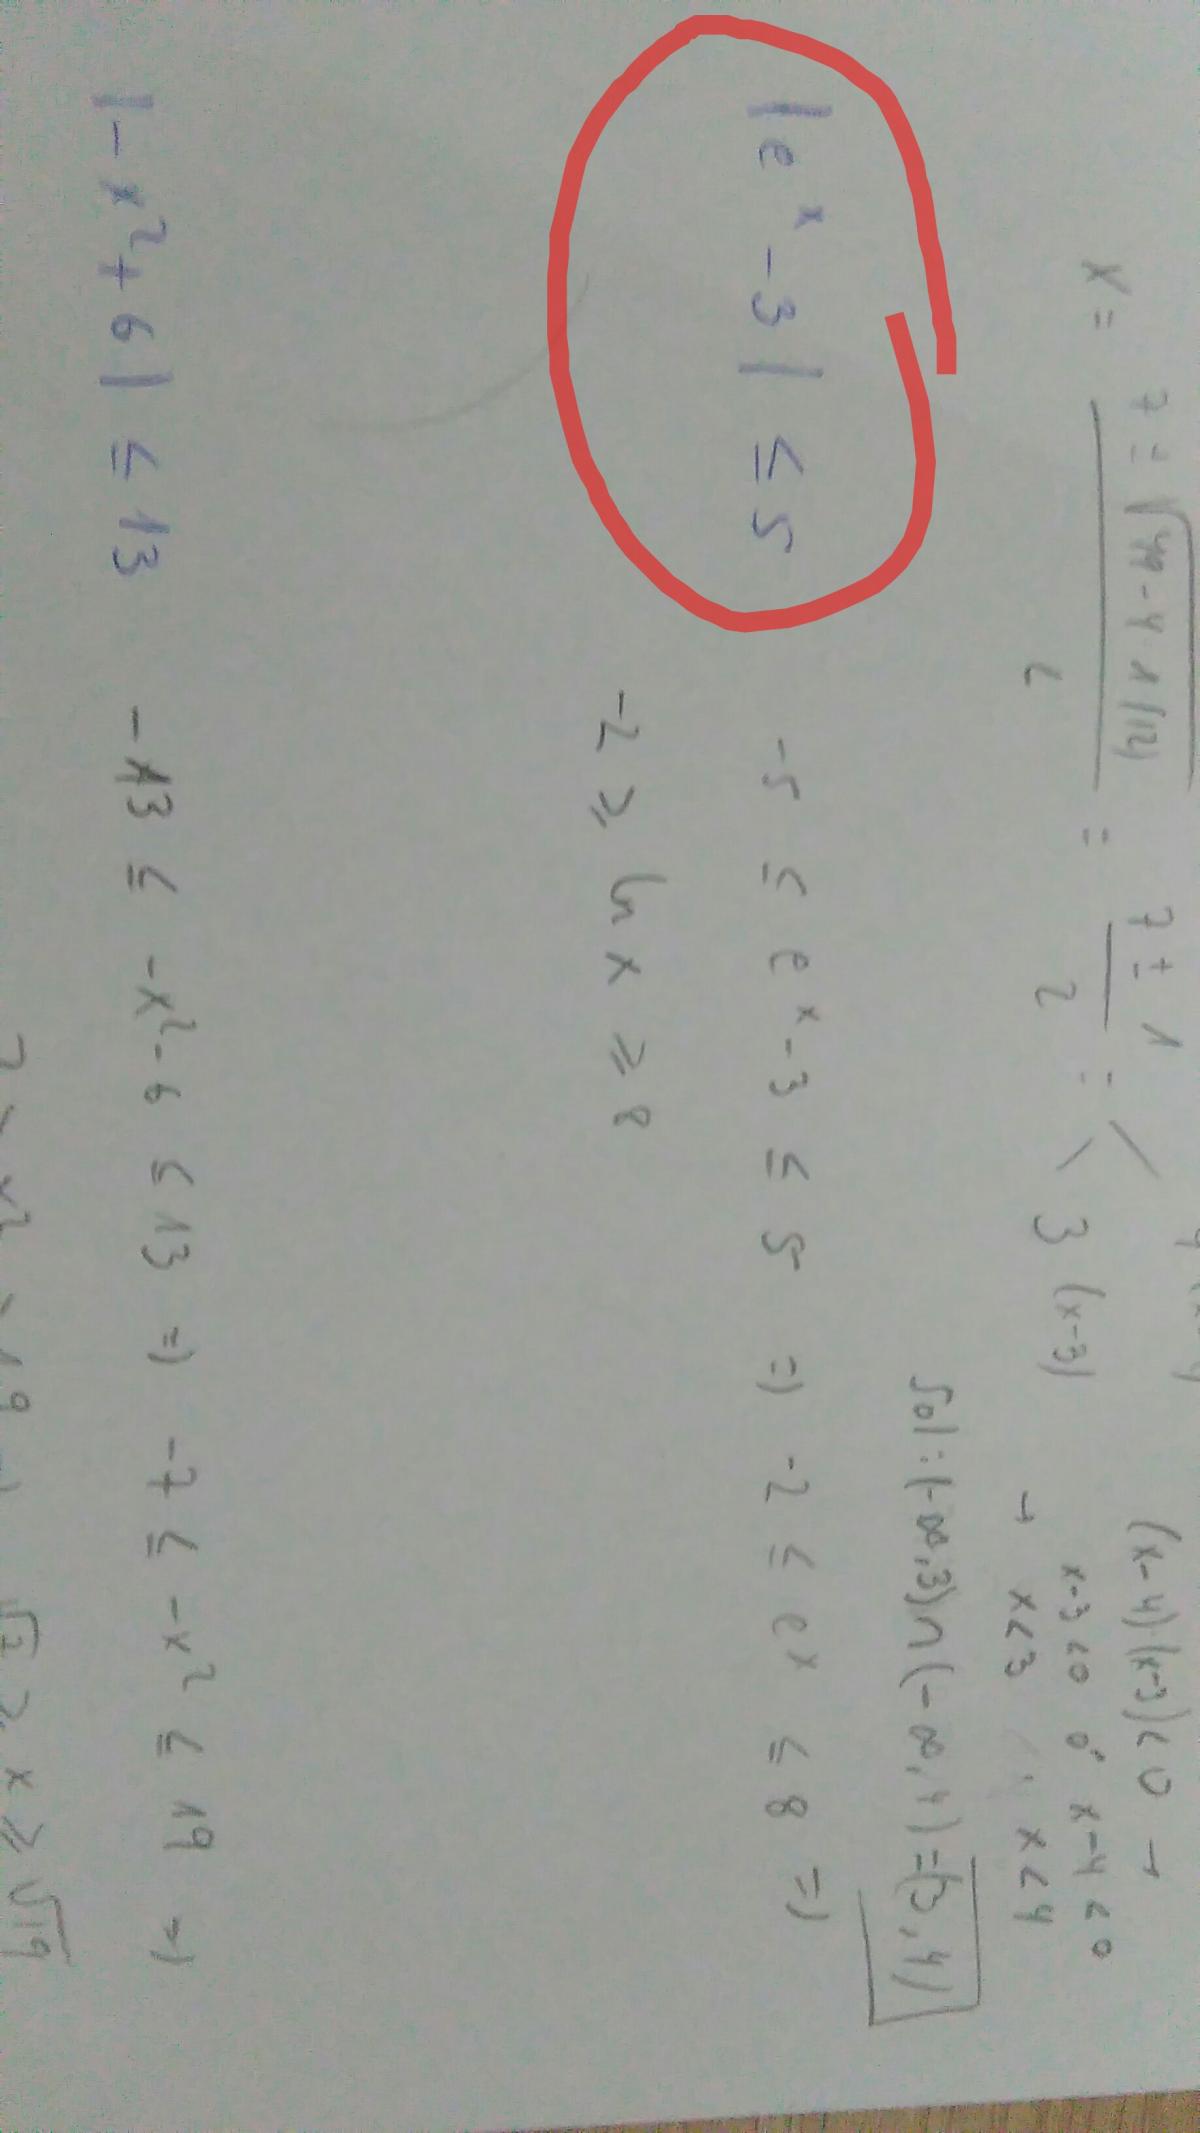 x = 7 ± √49-4·1·(12) / 2 = 7 ± 1 / 2 =
3 (x-3)
(x-4)·(x-3) < 0 →
x-3 < 0 ó x-4 < 0
→ x < 3 x < 4
Sol: (-∞,3) ∩ (-∞,4) = (3,4)
|e^x - 3| ≤ 5 -5 ≤ e^x - 3 ≤ 5 => -2 ≤ e^x ≤ 8 =>
-2 ≥ ln x ≥ 8
|-x² + 6| ≤ 13 -13 ≤ -x² - 6 ≤ 13 => -7 ≤ -x² ≤ 19 =>
≥ x ≥ √19